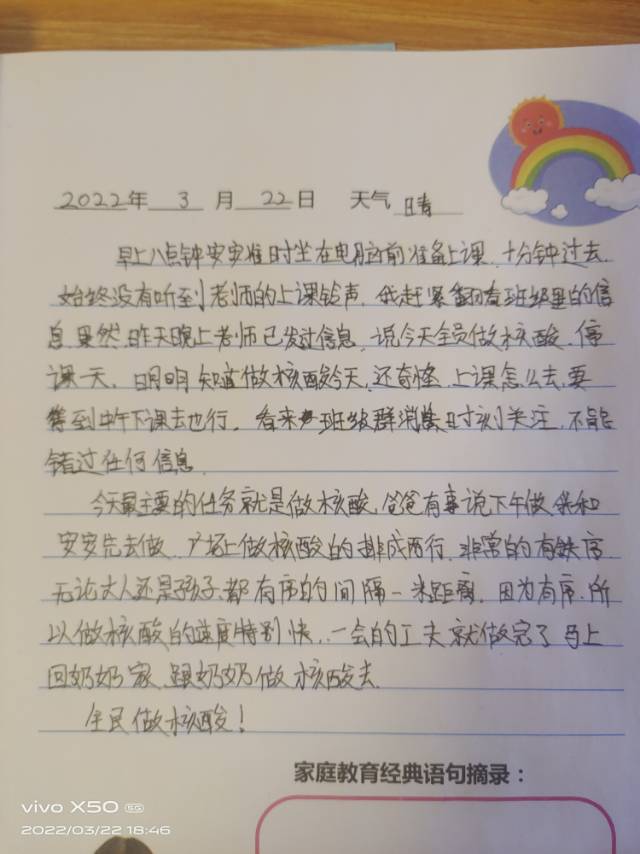 2022年 3 月 22日 天气 晴
早上八点钟安安准时坐在电脑前准备上课,十分钟过去,
始终没有听到老师的上课铃声,我赶紧翻看班级里的信
息果然,昨天晚上老师已发过信息,说今天全员做核酸,停
课一天,明明知道做核酸今天,还奇怪,上课怎么去,要
等到中午下课去也行。看来班级群消息时刻关注,不能
错过任何信息
今天最主要的任务就是做核酸,爸爸有事说下午做,我和
安安先去做,广场上做核酸的排成两行,非常的有秩序
无论大人还是孩子,都有序的间隔一米距离,因为有序,所
以做核酸的速度特别快,一会的工夫就做完了马上
回奶奶家,跟奶奶做核酸去
全民做核酸!
家庭教育经典语句摘录:
vivo X50 5G
2022/03/22 18:46